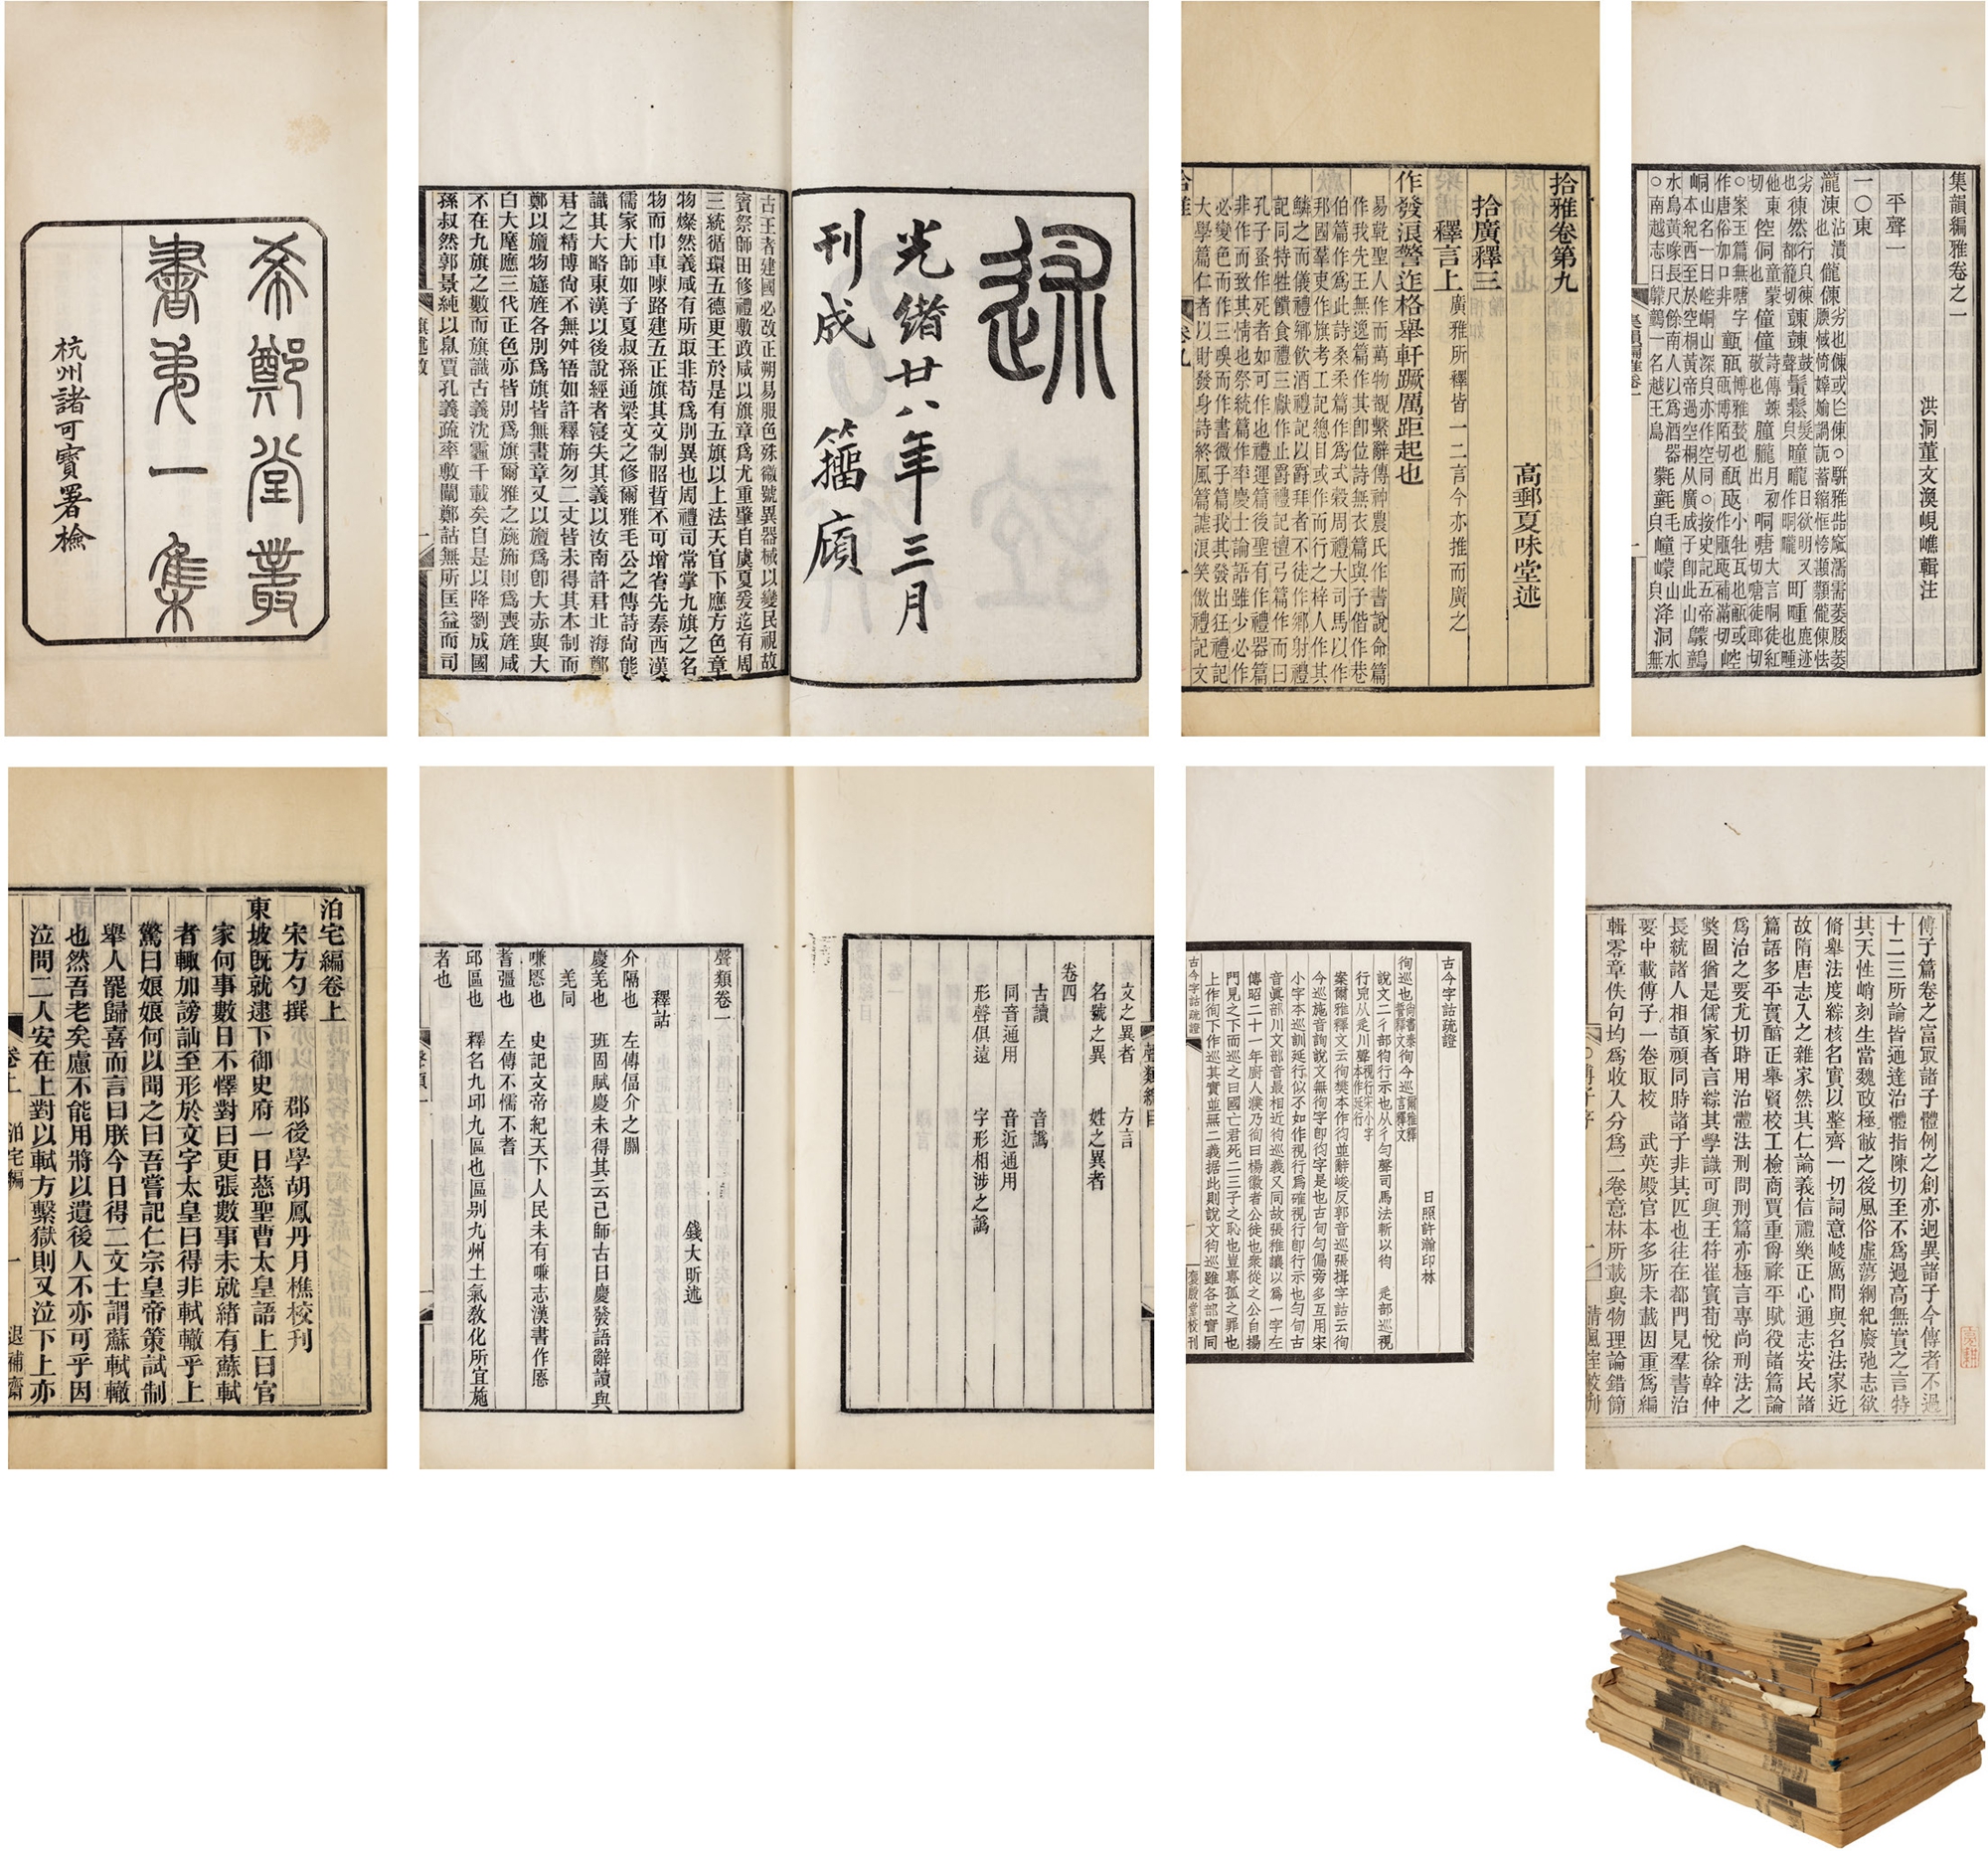 希鄭堂叢
書弟一集
杭州諸可寶署檢
述
光緒廿八年三月
刊成 籀廎
古王者建國必改正朔易服色殊徽號異器械以變民視故
賓祭師田修禮敷政咸以旗章爲尤重肇自虞夏爰迄有周
三統循環五德更王於是有五旗以上法天官下應方色章
物燦然義咸有所取非苟爲別異也周禮司常掌九旗之名
物而巾車陳路建五正旗其文制昭晳不可增省先秦西漢
儒家大師如子夏叔孫通梁文之修爾雅毛公之傳詩尙能
識其大略東漢以後說經者寖失其義以汝南許君北海鄭
君之精博尙不無舛啎如許釋旃勿二文皆未得其本制而
鄭以旜物旞旌各別爲旗皆無畫章又以旜爲卽大赤與大
白大麾應三代正色亦皆別爲旗爾雅之旐斾則爲喪旌咸
不在九旗之數而旗識古義沈霾千載矣自是以降劉成國
孫叔然郭景純以臮賈孔義疏率敷闡鄭詁無所匡益而司
拾雅卷第九
高郵夏味堂述
拾廣釋三
釋言上 廣雅所釋皆一二言今亦推而廣之
作發浪警迮格舉軒蹶厲距起也
易乾聖人作而萬物覩繫辭傳神農氏作書說命篇
作我先王無逸篇作其卽位詩無衣篇與子偕作巷
伯篇作爲此詩桑柔篇作爲式穀周禮大司馬以作
邦國羣吏作旗考工記總目或作而行之梓人作其
鱗之而儀禮鄉飲酒禮記以爵拜者不徒作鄉射禮
記同特牲饋食禮三獻作止爵禮記檀弓篇作而曰
孔子蚤作死者如可作也禮運篇後聖有作禮器篇
非作而致其情也祭統篇作率慶士論語雖少必作
必變色而作三嗅而作書微子篇我其發出狂禮記
大學篇仁者以財發身詩終風篇謔浪笑傲禮記文
集韻編雅卷之一
洪洞董文渙峴嶕輯注
平聲一
一〇東
泊宅編卷上
宋方勺撰 郡後學胡鳳丹月樵校刊
東坡旣就逮下御史府一日慈聖曹太皇語上曰官
家何事數日不懌對曰更張數事未就緒有蘇軾
者輒加謗訕至形於文字太皇曰得非軾轍乎上
驚曰娘娘何以聞之曰吾嘗記仁宗皇帝策試制
舉人罷歸喜而言曰朕今日得二文士謂蘇軾轍
也然吾老矣慮不能用將以遺後人不亦可乎因
泣問二人安在上對以軾方繫獄則又泣下上亦
卷上 泊宅編 一 退補齋
文之異者 方言
名號之異 姓之異者
卷四
古讀 音譌
同音通用 音近通用
形聲俱遠 字形相涉之譌
聲類卷一
錢大昕述
釋詁
介隔也 左傳偪介之關
慶羌也 班固賦慶未得其云已師古曰慶發語辭讀與
羌同
嗛慁也 史記文帝紀天下人民未有嗛志漢書作慁
耆彊也 左傳不懦不耆
邱區也 釋名九邱九區也區别九州土氣敎化所宜施
者也
古今字詁疏證
日照許瀚印林
說文二彳部䘩行示也从彳勻聲司馬法斬以䘩 辵部巡視
案爾雅釋文云徇樊本作䘩並辭峻反郭音巡張揖字詁云徇
今巡施音詢說文無徇字卽䘩字是也古旬勻偏旁多互用宋
小字本巡訓延行似不如作視行爲確視行卽行示也勻旬古
音眞部川文部音最相近䘩巡義又同故張稚讓以爲一字左
傳昭二十一年廚人濮乃徇曰楊徽者公徒也衆從之公自揚
門見之下而巡之曰國亡君死二三子之恥也豈專孤之罪也
上作徇下作巡其實並無二義据此則說文䘩巡雖各部實同
古今字詁疏證 一
傅子篇卷之富冣諸子體例之創亦迥異諸子今傳者不過
十二三所論皆通達治體指陳切至不爲過高無實之言特
其天性峭刻生當魏政極敝之後風俗虛蕩綱紀廢弛志欲
脩舉法度綜核名實以整齊一切詞意峻厲間與名法家近
故隋唐志入之雜家然其仁論義信禮樂正心通志安民諸
篇語多平實醕正舉賢校工檢商賈重爵祿平賦役諸篇論
爲治之要尤切時用治體法刑問刑篇亦極言專尚刑法之
獘固猶是儒家者言綜其學識可與王符崔實荀悅徐幹仲
長統諸人相頡頏同時諸子非其匹也往在都門見羣書治
要中載傅子一卷取校 武英殿官本多所未載因重爲編
輯零章佚句均爲收入分爲二卷意林所載與物理論錯簡